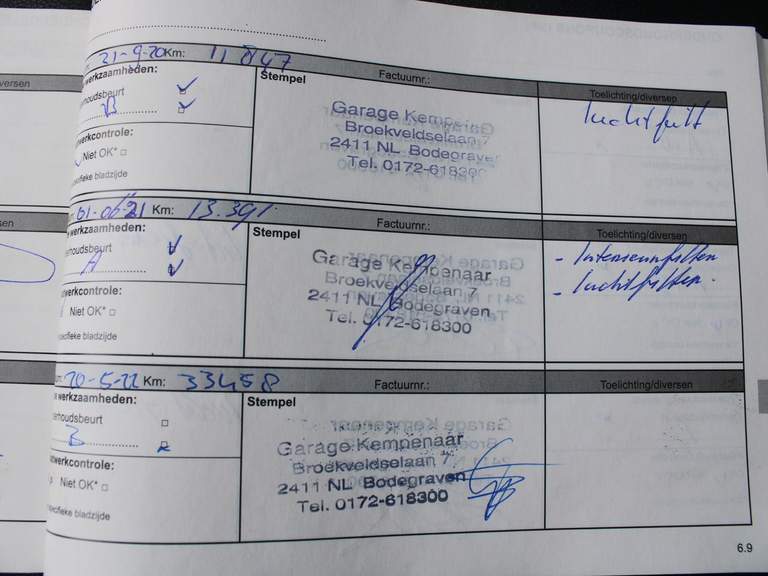 21-9-20 Km: 11847
werkzaamheden:
Stempel
Factuurnr.:
Toelichting/diversen
rhoudsbeurt
B
Garage Kempenaar
Broekveldselaan 7
2411 NL Bodegraven
Tel. 0172-618300
luchtfilt
werkcontrole:
Niet OK*
ecifieke bladzijde
01-06-21 Km: 13.391
werkzaamheden:
Stempel
Factuurnr.:
Toelichting/diversen
rhoudsbeurt
A
Garage Kempenaar
Broekveldselaan 7
2411 NL Bodegraven
Tel. 0172-618300
- Interieurfilter
- luchtfilter.
werkcontrole:
Niet OK*
ecifieke bladzijde
20-5-22 Km: 33458
e werkzaamheden:
Stempel
Factuurnr.:
Toelichting/diversen
rhoudsbeurt
B
Garage Kempenaar
Broekveldselaan 7
2411 NL Bodegraven
Tel. 0172-618300
werkcontrole:
Niet OK*
pecifieke bladzijde
6.9